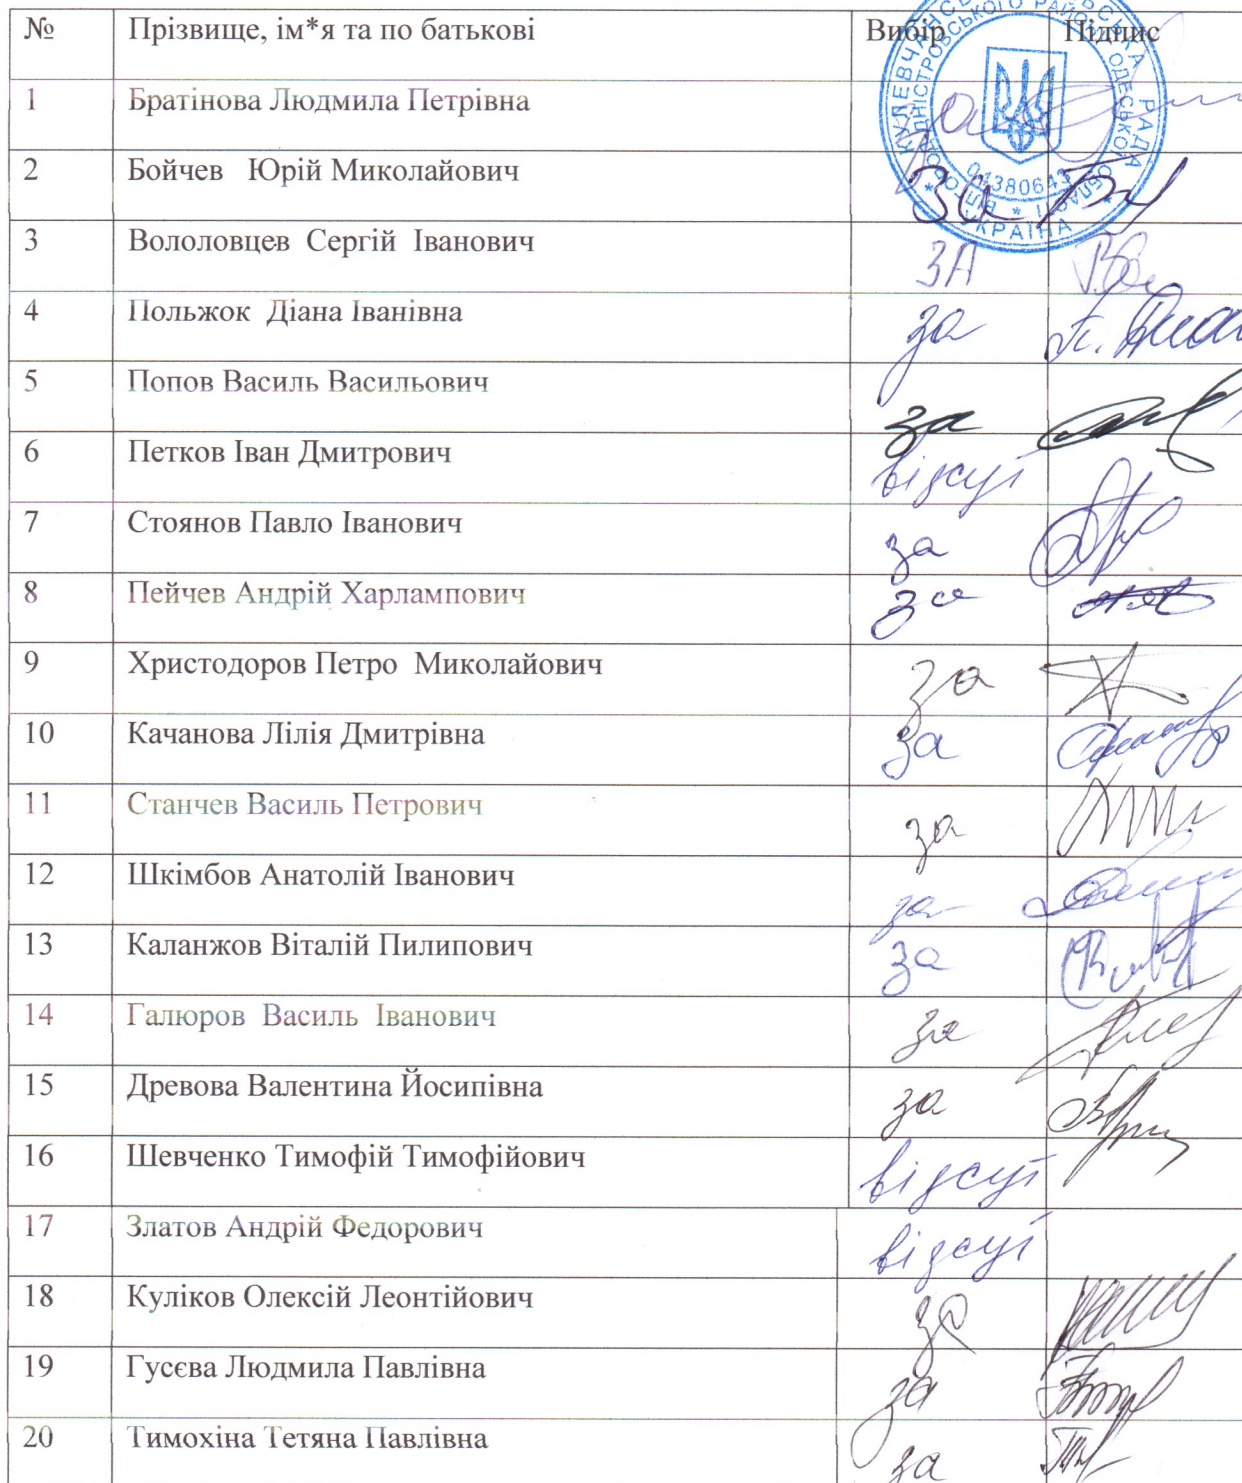 № Прізвище, ім*я та по батькові Вибір Підпис
1 Братінова Людмила Петрівна за
2 Бойчев Юрій Миколайович за
3 Вололовцев Сергій Іванович ЗА
4 Польжок Діана Іванівна за
5 Попов Василь Васильович за
6 Петков Іван Дмитрович відсут
7 Стоянов Павло Іванович за
8 Пейчев Андрій Харлампович за
9 Христодоров Петро Миколайович за
10 Качанова Лілія Дмитрівна за
11 Станчев Василь Петрович за
12 Шкімбов Анатолій Іванович за
13 Каланжов Віталій Пилипович за
14 Галюров Василь Іванович за
15 Древова Валентина Йосипівна за
16 Шевченко Тимофій Тимофійович відсут
17 Златов Андрій Федорович відсут
18 Куліков Олексій Леонтійович за
19 Гусєва Людмила Павлівна за
20 Тимохіна Тетяна Павлівна за
РАДА
ОДЕСЬКОЇ
04380643
УКРАЇНА